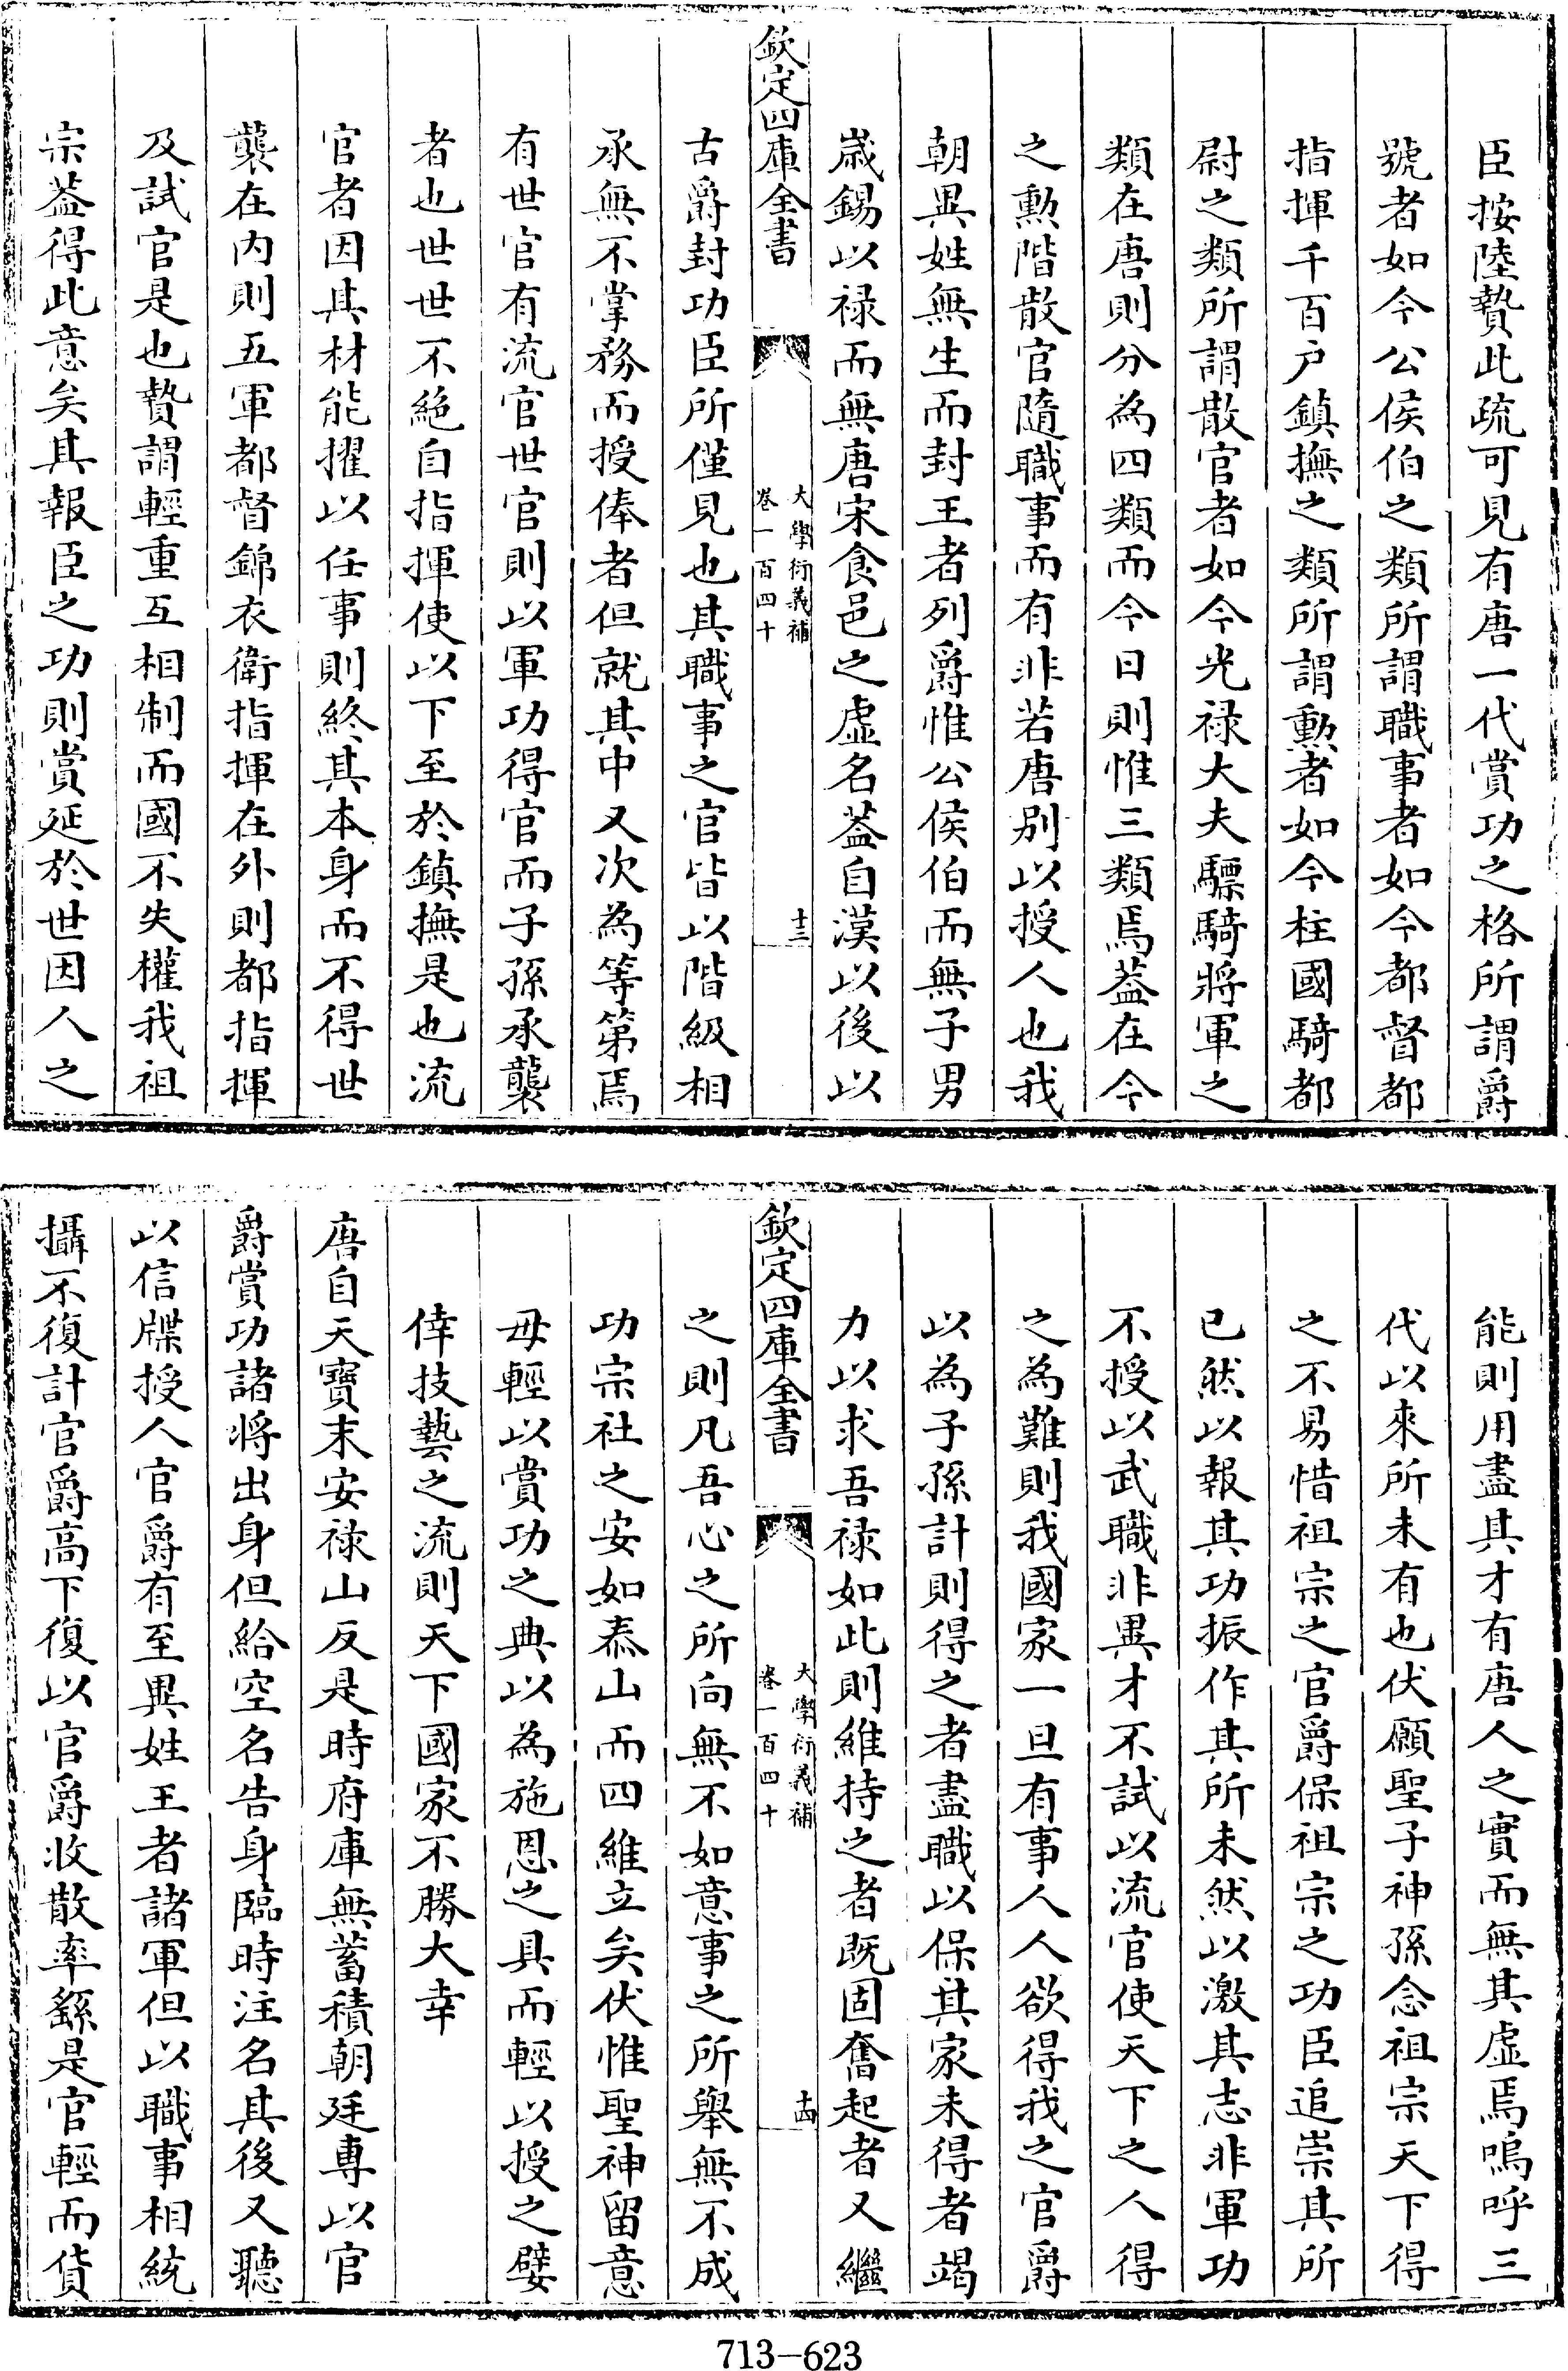 臣按陸贄此疏可見有唐一代賞功之格所謂爵
號者如今公侯伯之類所謂職事者如今都督都
指揮千百户鎮撫之類所謂勲者如今柱國騎都
尉之類所謂散官者如今光禄大夫驃騎將軍之
類在唐則分為四類而今日則惟三類焉葢在今
之勲階散官隨職事而有非若唐别以授人也我
朝異姓無生而封王者列爵惟公侯伯而無子男
歳錫以禄而無唐宋食邑之虚名葢自漢以後以
欽定四庫全書
大學衍義補
卷一百四十
十三
古爵封功臣所僅見也其職事之官皆以階級相
承無不掌務而授俸者但就其中又次為等第焉
有世官有流官世官則以軍功得官而子孫承襲
者也世世不絶自指揮使以下至於鎮撫是也流
官者因其材能擢以任事則終其本身而不得世
襲在内則五軍都督錦衣衛指揮在外則都指揮
及試官是也贄謂輕重互相制而國不失權我祖
宗葢得此意矣其報臣之功則賞延於世因人之
能則用盡其才有唐人之實而無其虚焉嗚呼三
代以來所未有也伏願聖子神孫念祖宗天下得
之不易惜祖宗之官爵保祖宗之功臣追崇其所
已然以報其功振作其所未然以激其志非軍功
不授以武職非異才不試以流官使天下之人得
之為難則我國家一旦有事人人欲得我之官爵
以為子孫計則得之者盡職以保其家未得者竭
力以求吾禄如此則維持之者既固奮起者又繼
欽定四庫全書
大學衍義補
卷一百四十
十四
之則凡吾心之所向無不如意事之所舉無不成
功宗社之安如泰山而四維立矣伏惟聖神留意
毋輕以賞功之典以為施恩之具而輕以授之嬖
倖技藝之流則天下國家不勝大幸
唐自天寶末安禄山反是時府庫無蓄積朝廷專以官
爵賞功諸將出身但給空名告身臨時注名其後又聽
以信牒授人官爵有至異姓王者諸軍但以職事相統
攝不復計官爵高下復以官爵收散率繇是官輕而貨
713-623